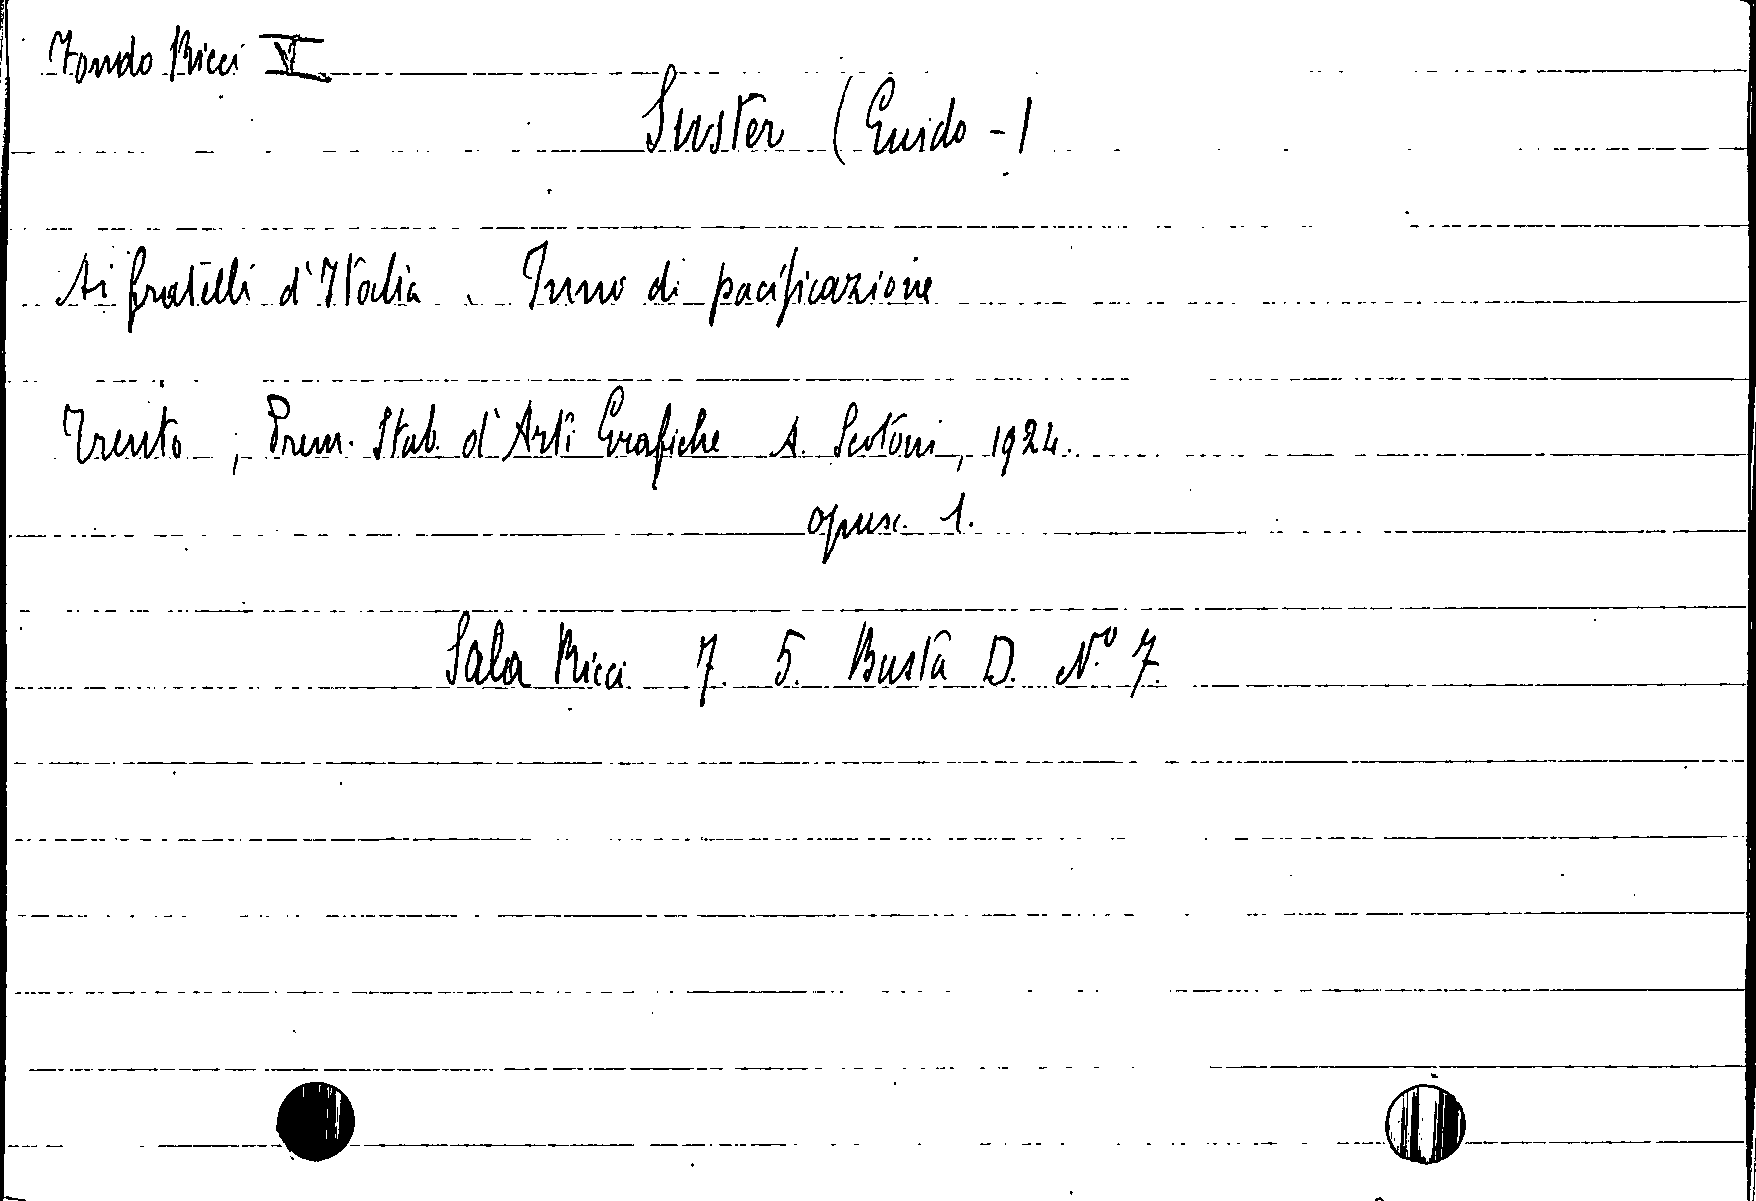 Fondo Ricci V
Suster (Guido -)
Ai fratelli d'Italia. Inno di pacificazione
Trento, Prem. Stab. d'Arti Grafiche A. Scotoni, 1924.
opusc. 1.
Sala Ricci 7. 5. Busta D. N.º 7.